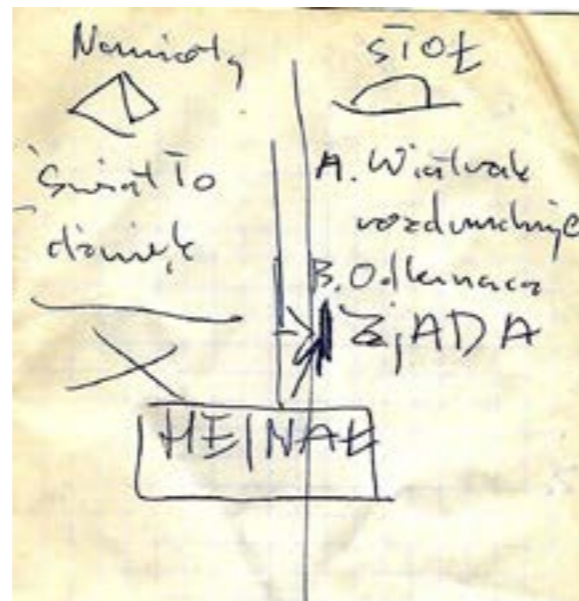 Namioty
Światło
dźwięk
STÓŁ
A. Wiatrak
rozdmuchuje
B. Odkurzacz
ZjADA
HEJNAŁ